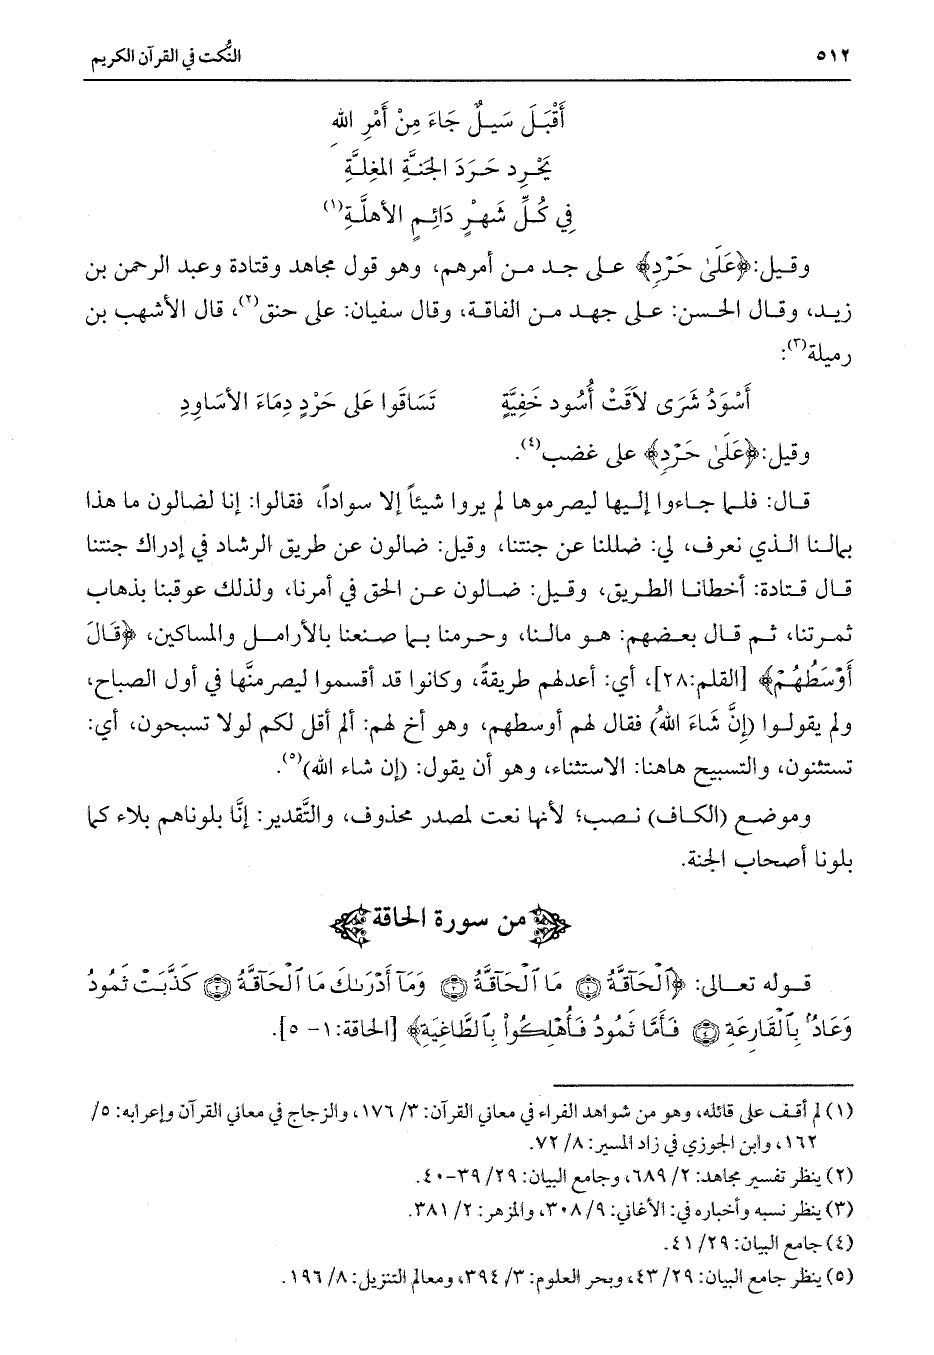 ٥١٢ النُّكت في القرآن الكريم
أَقْبَلَ سَيـلٌ جَاءَ مِنْ أَمْرِ اللهِ
يَحْرِد حَـرَدَ الجَنـَّةِ المُغِلـَّةِ
فِي كُلِّ شَهـْرٍ دَائِـمِ الأهلَّـةِ(١)
وقيل: ﴿عَلَىٰ حَرْدٍ﴾ على جد من أمرهم، وهو قول مجاهد وقتادة وعبد الرحمن بن
زيد، وقال الحسن: على جهد من الفاقة، وقال سفيان: على حنق(٢)، قال الأشهب بن
رميلة(٣):
أَسْوَدُ شَرَى لاَقَتْ أُسُود خَفِيَّةٍ تَسَاقَوا عَلَى حَرْدٍ دِمَاءَ الأسَاوِدِ
وقيل: ﴿عَلَىٰ حَرْدٍ﴾ على غضب(٤).
قال: فلما جاءوا إليها ليصرموها لم يروا شيئاً إلا سواداً، فقالوا: إنا لضالون ما هذا
بمالنا الذي نعرف، لي: ضللنا عن جنتنا، وقيل: ضالون عن طريق الرشاد في إدراك جنتنا
قال قتادة: أخطانا الطريق، وقيل: ضالون عن الحق في أمرنا، ولذلك عوقبنا بذهاب
ثمرتنا، ثم قال بعضهم: هو مالنا، وحرمنا بما صنعنا بالأرامل والمساكين، ﴿قَالَ
أَوْسَطُهُمْ﴾ [القلم:٢٨]، أي: أعدلهم طريقةً، وكانوا قد أقسموا ليصرمنَّها في أول الصباح،
ولم يقولوا (إِنَّ شَاءَ اللهُ) فقال لهم أوسطهم، وهو أخ لهم: ألم أقل لكم لولا تسبحون، أي:
تستثنون، والتسبيح هاهنا: الاستثناء، وهو أن يقول: (إن شاء الله)(٥).
وموضع (الكاف) نصب؛ لأنها نعت لمصدر محذوف، والتَّقدير: إنَّا بلوناهم بلاء كما
بلونا أصحاب الجنة.
من سورة الحاقة
قوله تعالى: ﴿ٱلْحَآقَّةُ ۝١ مَا ٱلْحَآقَّةُ ۝٢ وَمَآ أَدْرَىٰكَ مَا ٱلْحَآقَّةُ ۝٣ كَذَّبَتْ ثَمُودُ
وَعَادٌۢ بِٱلْقَارِعَةِ ۝٤ فَأَمَّا ثَمُودُ فَأُهْلِكُوا۟ بِٱلطَّاغِيَةِ﴾ [الحاقة:١- ٥].
(١) لم أقف على قائله، وهو من شواهد الفراء في معاني القرآن: ٣/ ١٧٦، والزجاج في معاني القرآن وإعرابه: ٥/
١٦٢، وابن الجوزي في زاد المسير: ٨/ ٧٢.
(٢) ينظر تفسير مجاهد: ٢/ ٦٨٩، وجامع البيان: ٢٩/ ٣٩-٤٠.
(٣) ينظر نسبه وأخباره في: الأغاني: ٩/ ٣٠٨، والمزهر: ٢/ ٣٨١.
(٤) جامع البيان: ٢٩/ ٤١.
(٥) ينظر جامع البيان: ٢٩/ ٤٣، وبحر العلوم: ٣/ ٣٩٤، ومعالم التنزيل: ٨/ ١٩٦.